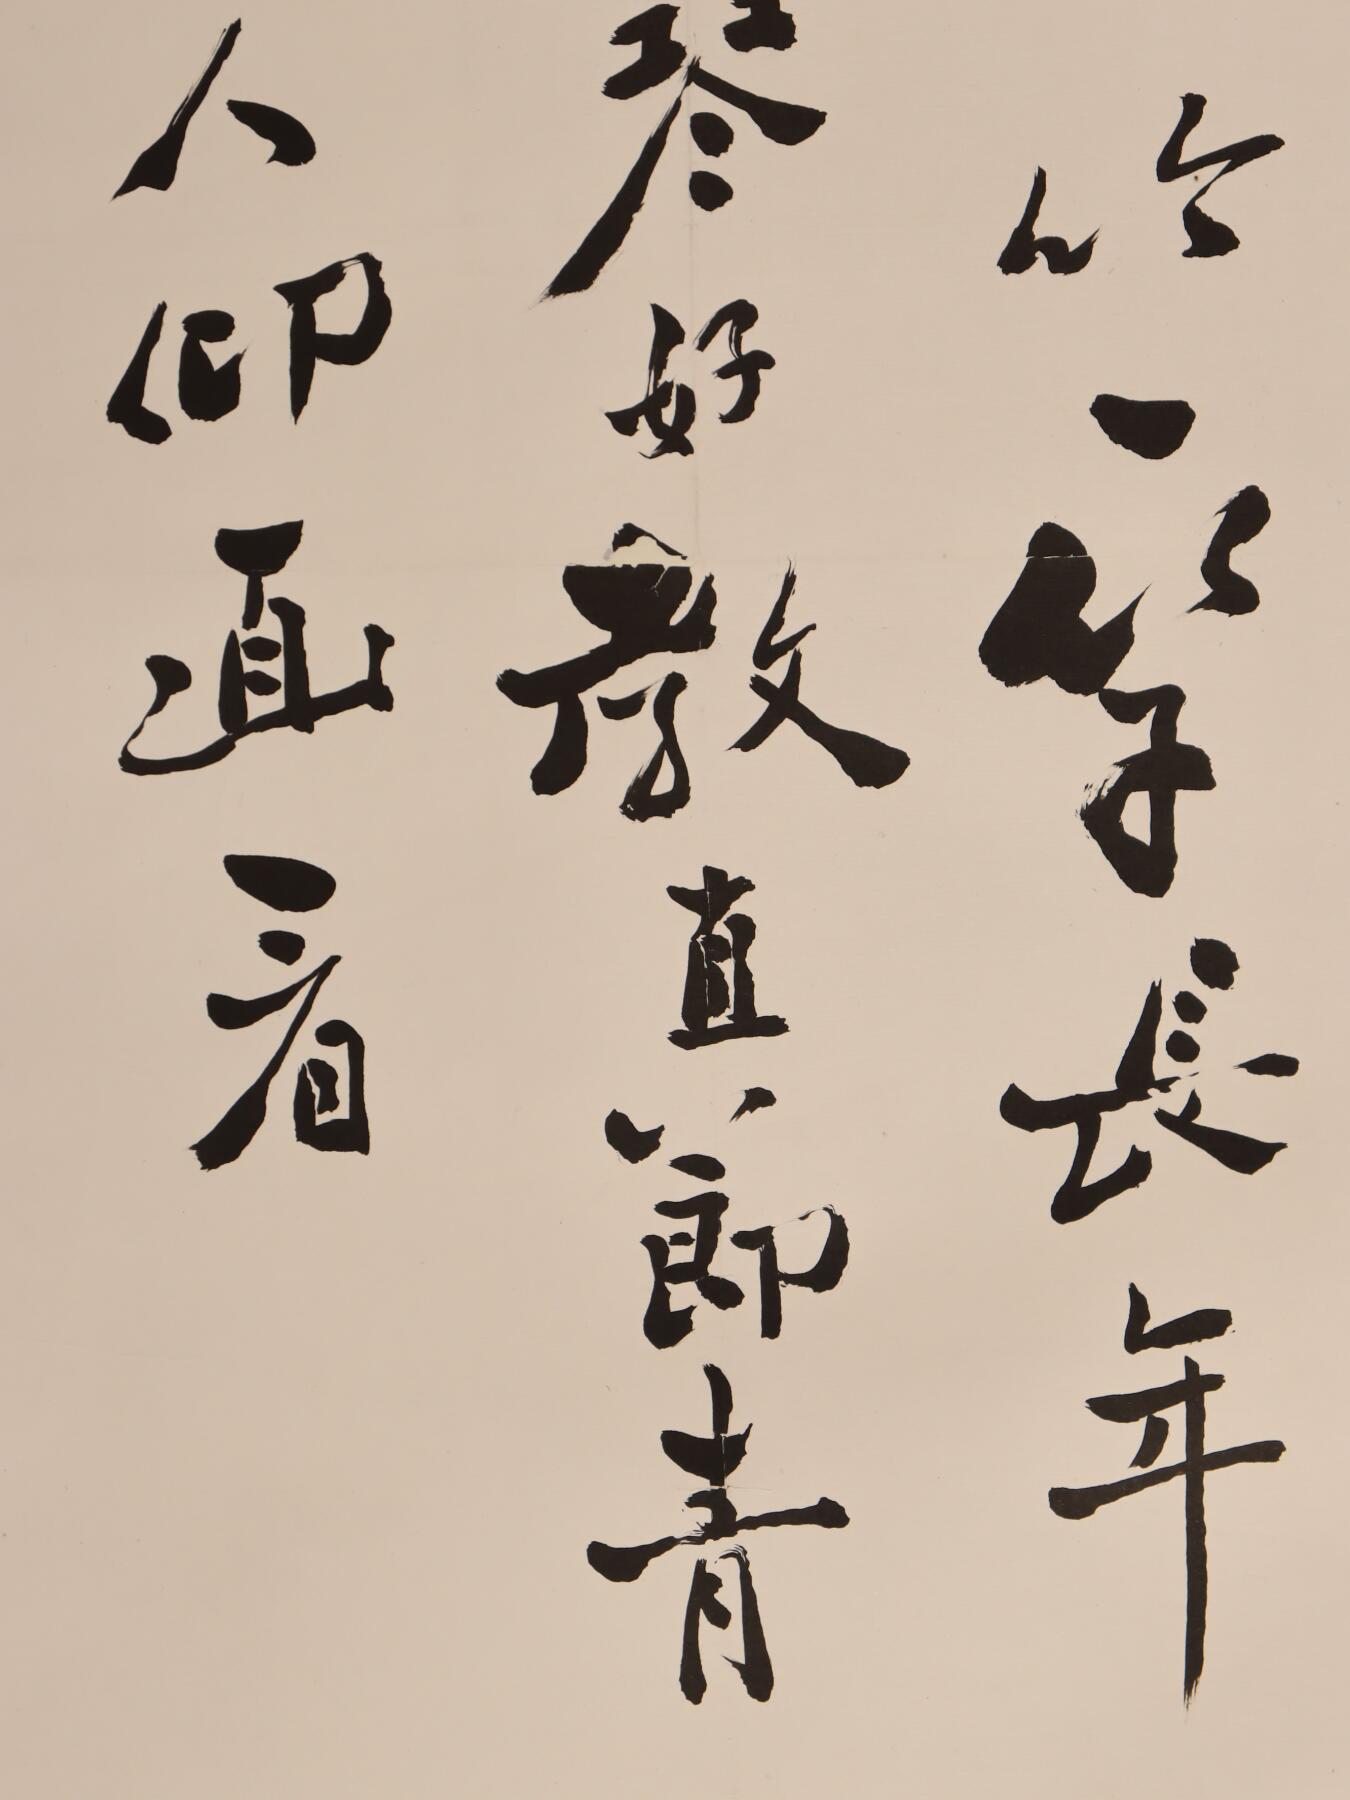 竹一竿長年
琴好教直節青
人仰面看